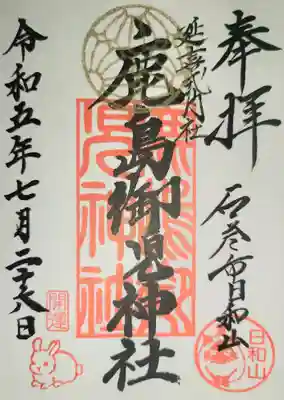 奉拝
延喜式内社
石巻市日和山
鹿島御児神社
令和五年七月二十八日
開運
日和山